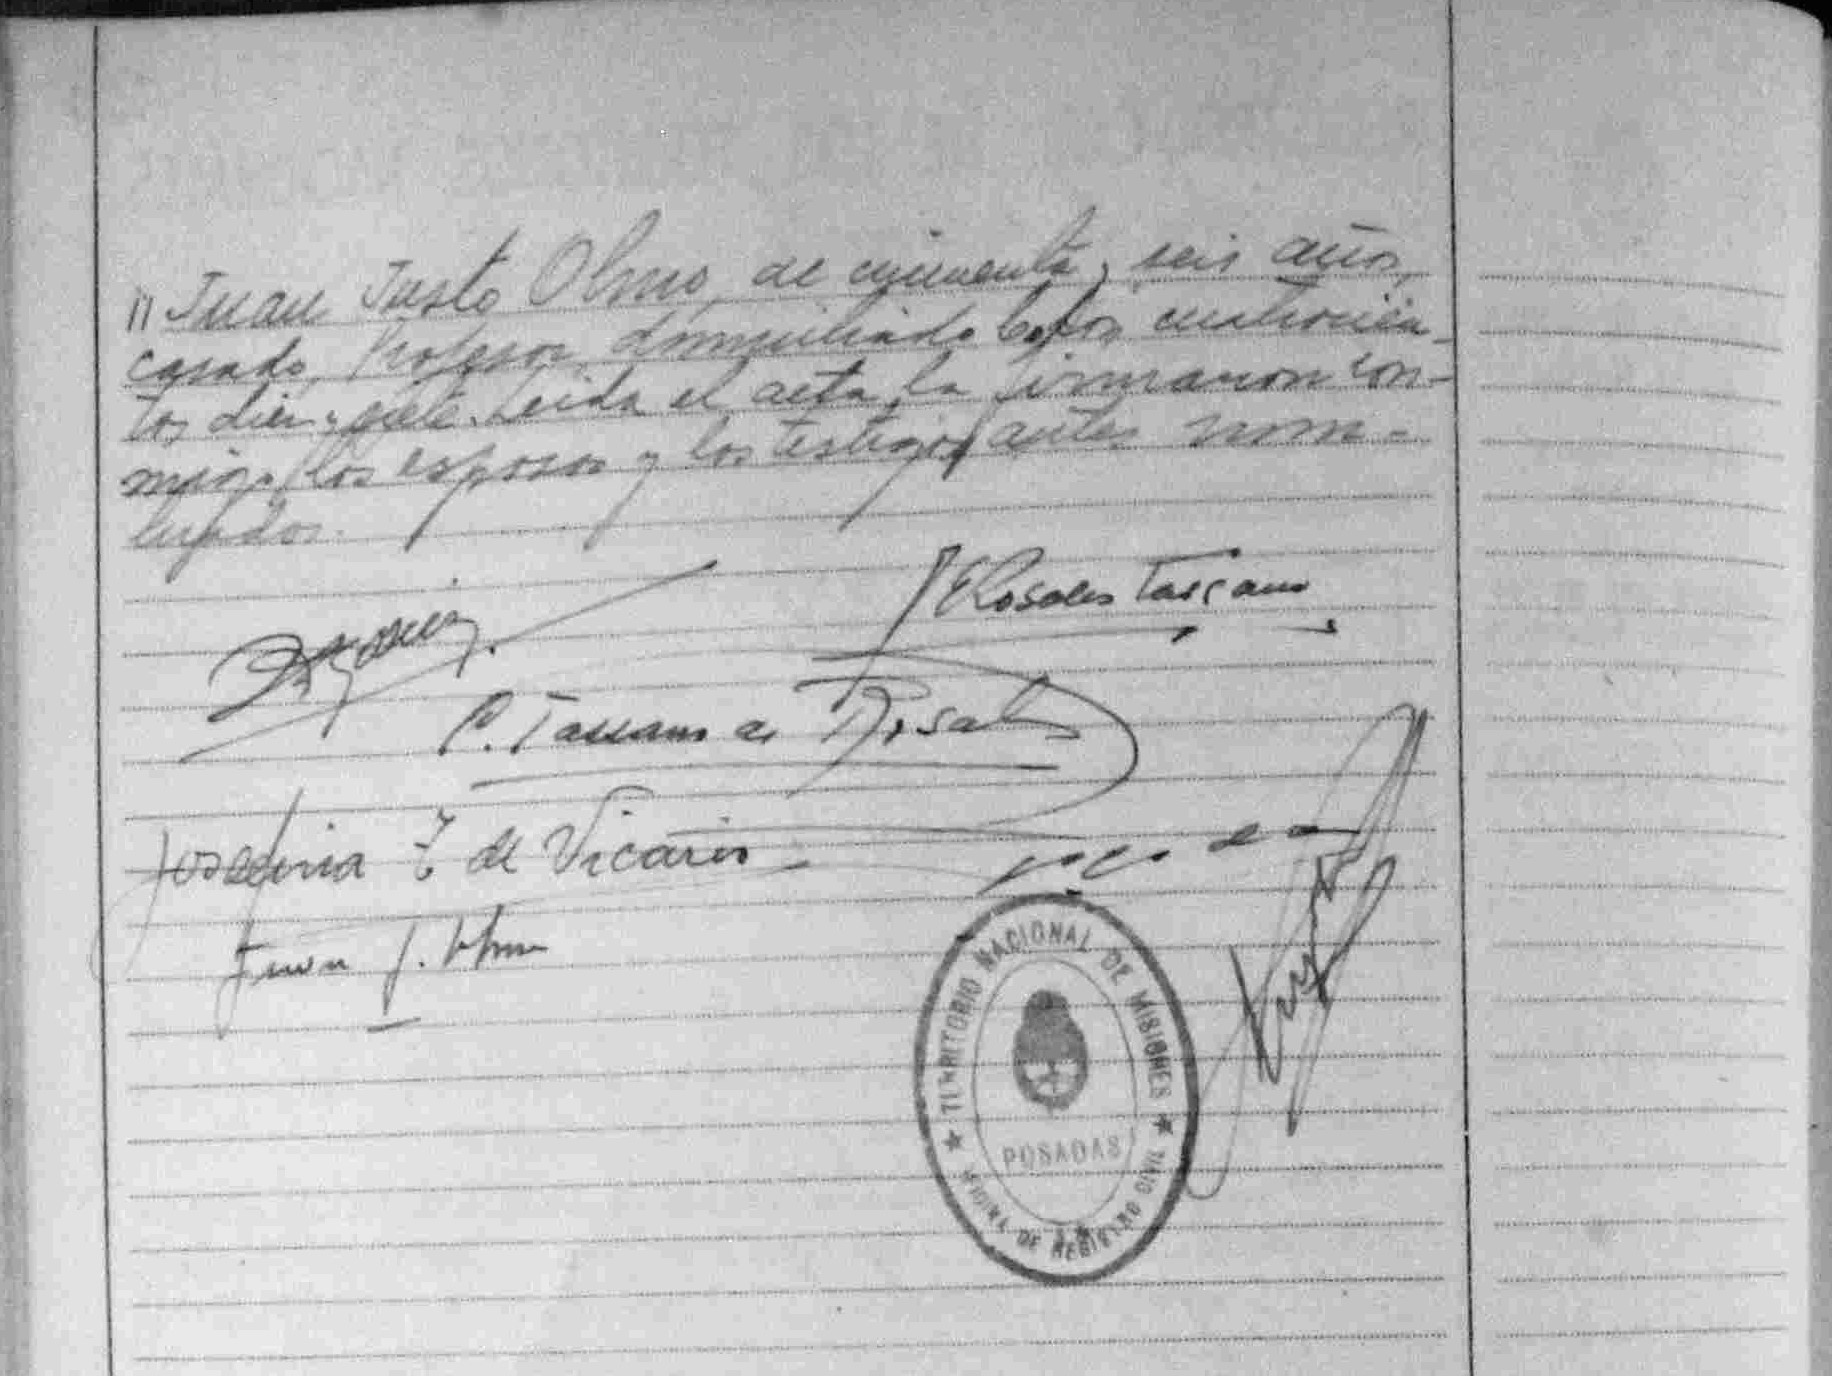 〃 Juan Justo Olmo, de cincuenta y seis años,
casado, Profesor, domiciliado Colón cuatrocien-
tos diez y siete. Leída el acta la firmaron con-
migo, los esposos y los testigos antes nom-
brados.
E Rosales Tassano
C. Tassano de Rosales
Josefina T de Vicario
Juan J. Olmo
★ TERRITORIO NACIONAL DE MISIONES ★
POSADAS
OFICINA DE REGISTRO CIVIL